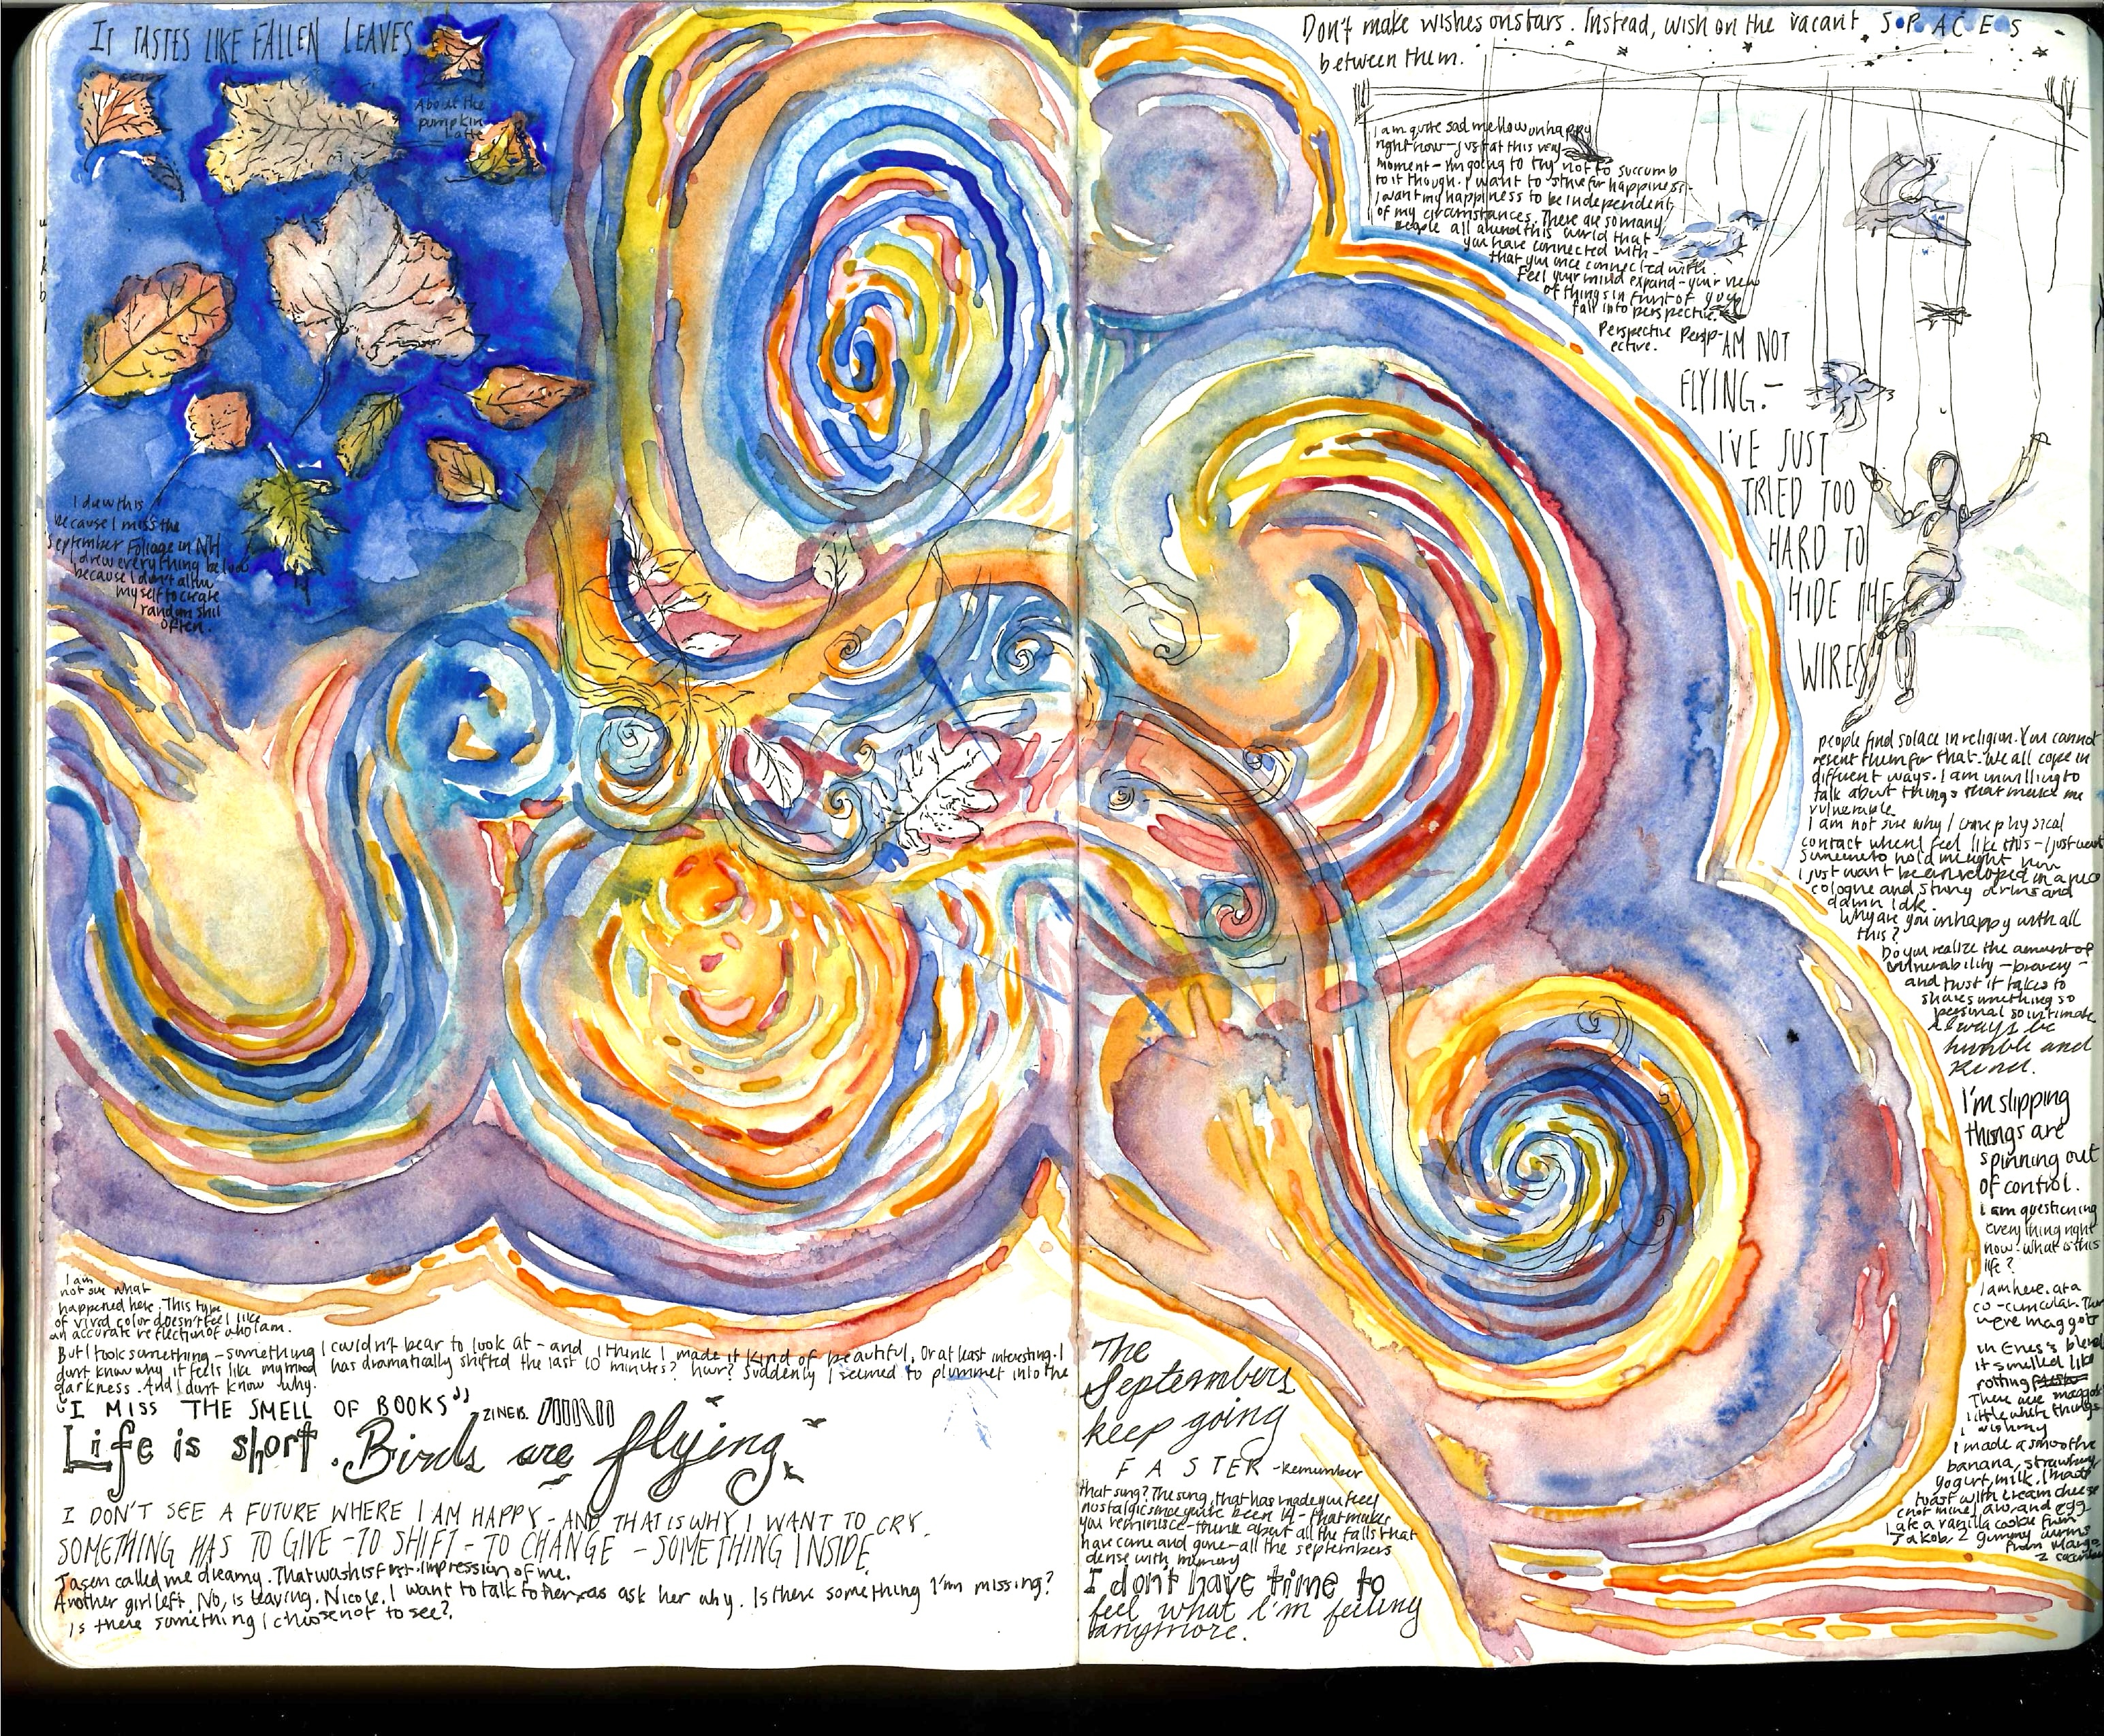 IT TASTES LIKE FALLEN LEAVES
About the
pumpkin
Latte
I drew this
because I miss the
September Foliage in NH
I drew everything below
because I don't allow
myself to create
random shit
often.
I am
not sure what
happened here. This type
of vivid color doesn't feel like
an accurate reflection of who I am.
But I took something - something I couldn't bear to look at - and I think I made it kind of beautiful. Or at least interesting. I
dont know why it feels like my mood has dramatically shifted the last 10 minutes? how? Suddenly I seemed to plummet into the
darkness. And I dont know why.
"I MISS THE SMELL OF BOOKS" ZINEB.
Life is short. Birds are flying.
I DON'T SEE A FUTURE WHERE I AM HAPPY - AND THAT IS WHY I WANT TO CRY.
SOMETHING HAS TO GIVE - TO SHIFT - TO CHANGE - SOMETHING INSIDE.
called me dreamy. That was his first impression of me.
Another girl left. No, is leaving. Nicole. I want to talk to her ask her why. Is there something I'm missing?
Is there something I choose not to see?
Don't make wishes on stars. Instead, wish on the vacant SPACES
between them.
I am quite sad mellow unhappy
right now - just at this very
moment - I'm going to try not to succumb
to it though. I want to strive for happiness -
I want my happiness to be independent
of my circumstances. There are so many
people all around this world that
you have connected with -
that you once connected with.
Feel your mind expand - your view
of things in front of you
fall into perspective.
Perspective Persp-
ective.
AM NOT
FLYING. -
I'VE JUST
TRIED TOO
HARD TO
HIDE THE
WIRES
people find solace in religion. You cannot
resent them for that. We all cope in
different ways. I am unwilling to
talk about things that make me
vulnerable.
I am not sure why I crave physical
contact when I feel like this - I just want
someone to hold me right now
I just want to be enveloped in a nice
cologne and strong arms and
damn idk.
Why are you unhappy with all
this?
Do you realize the amount of
vulnerability - bravery -
and trust it takes to
share something so
personal so intimate
Always be
humble and
kind.
I'm slipping
things are
spinning out
of control.
I am questioning
everything right
now - what is this
life?
I am here. at a
co-curricular. There
were maggots
in Enes's blend
it smelled like
rotting
There are maggots
little white things
I made a smoothie
banana, strawberry
yogurt, milk. I made
toast with cream cheese
(not mine) and egg
I ate a vanilla cookie from
Jakob, 2 gummy worms
from Margo
The
Septembers
keep going
FASTER - Remember
that song? The song that has made you feel
nostalgic since you've been 14 - that makes
you reminisce - think about all the falls that
have come and gone - all the septembers
dense with memory
I dont have time to
feel what I'm feeling
anymore.